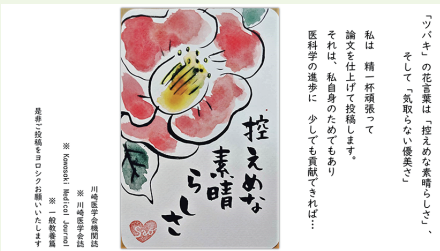 『ツバキ』の花言葉は「控えめな素晴らしさ」、
そして「気取らない優美さ」
私は 精一杯頑張って
論文を仕上げて投稿します。
それは、私自身のためでもあり
医科学の進歩に 少しでも貢献できれば…
控えめな
素晴
らしさ
川崎医学会機関誌
※ 川崎医学会誌
※ Kawasaki Medical Journal
※ 一般教養篇
是非ご投稿をヨロシクお願いいたします